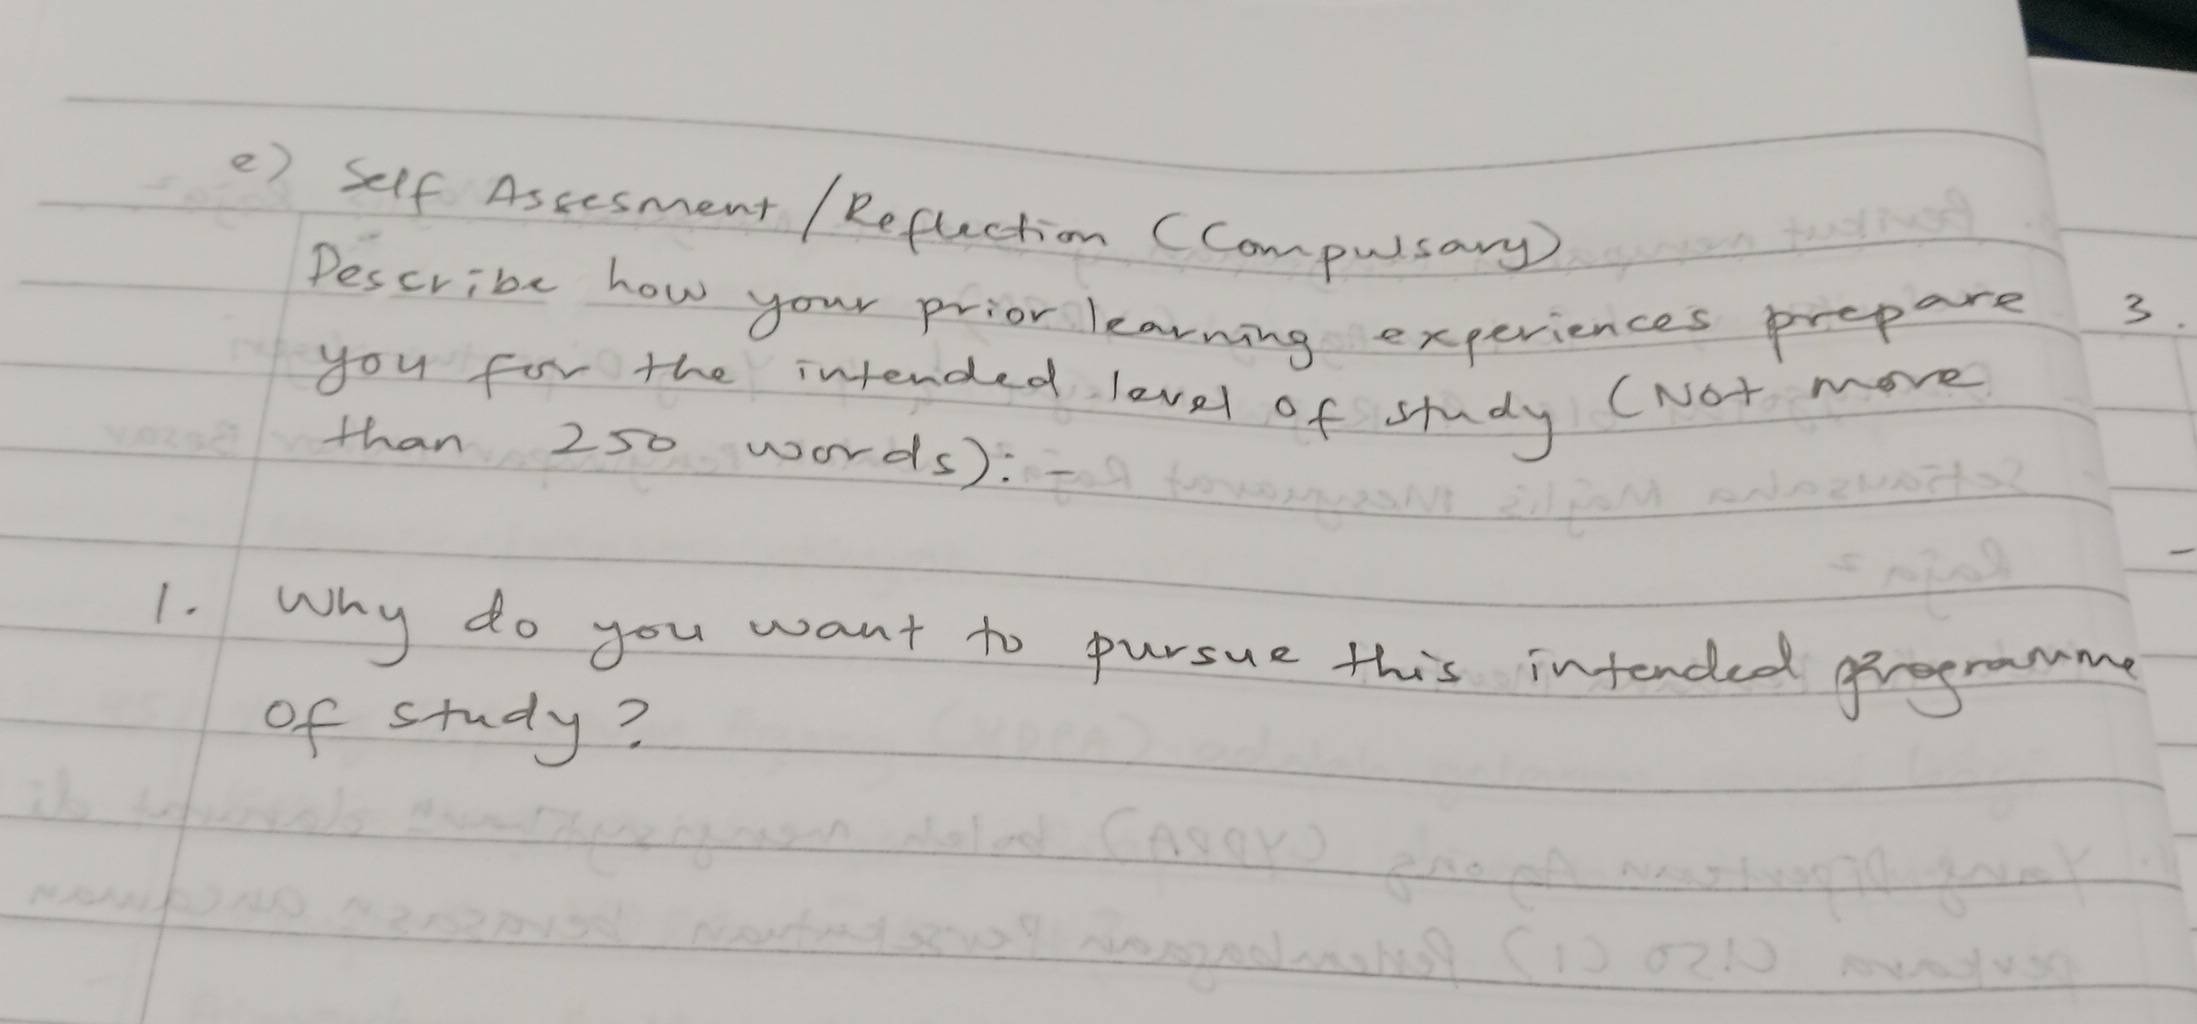 e) Self Assesment / Reflection (Compulsary)
Describe how your prior learning experiences prepare
3.
you for the intended level of study (Not more
than 250 words): -
1. Why do you want to pursue this intended programme
of study?